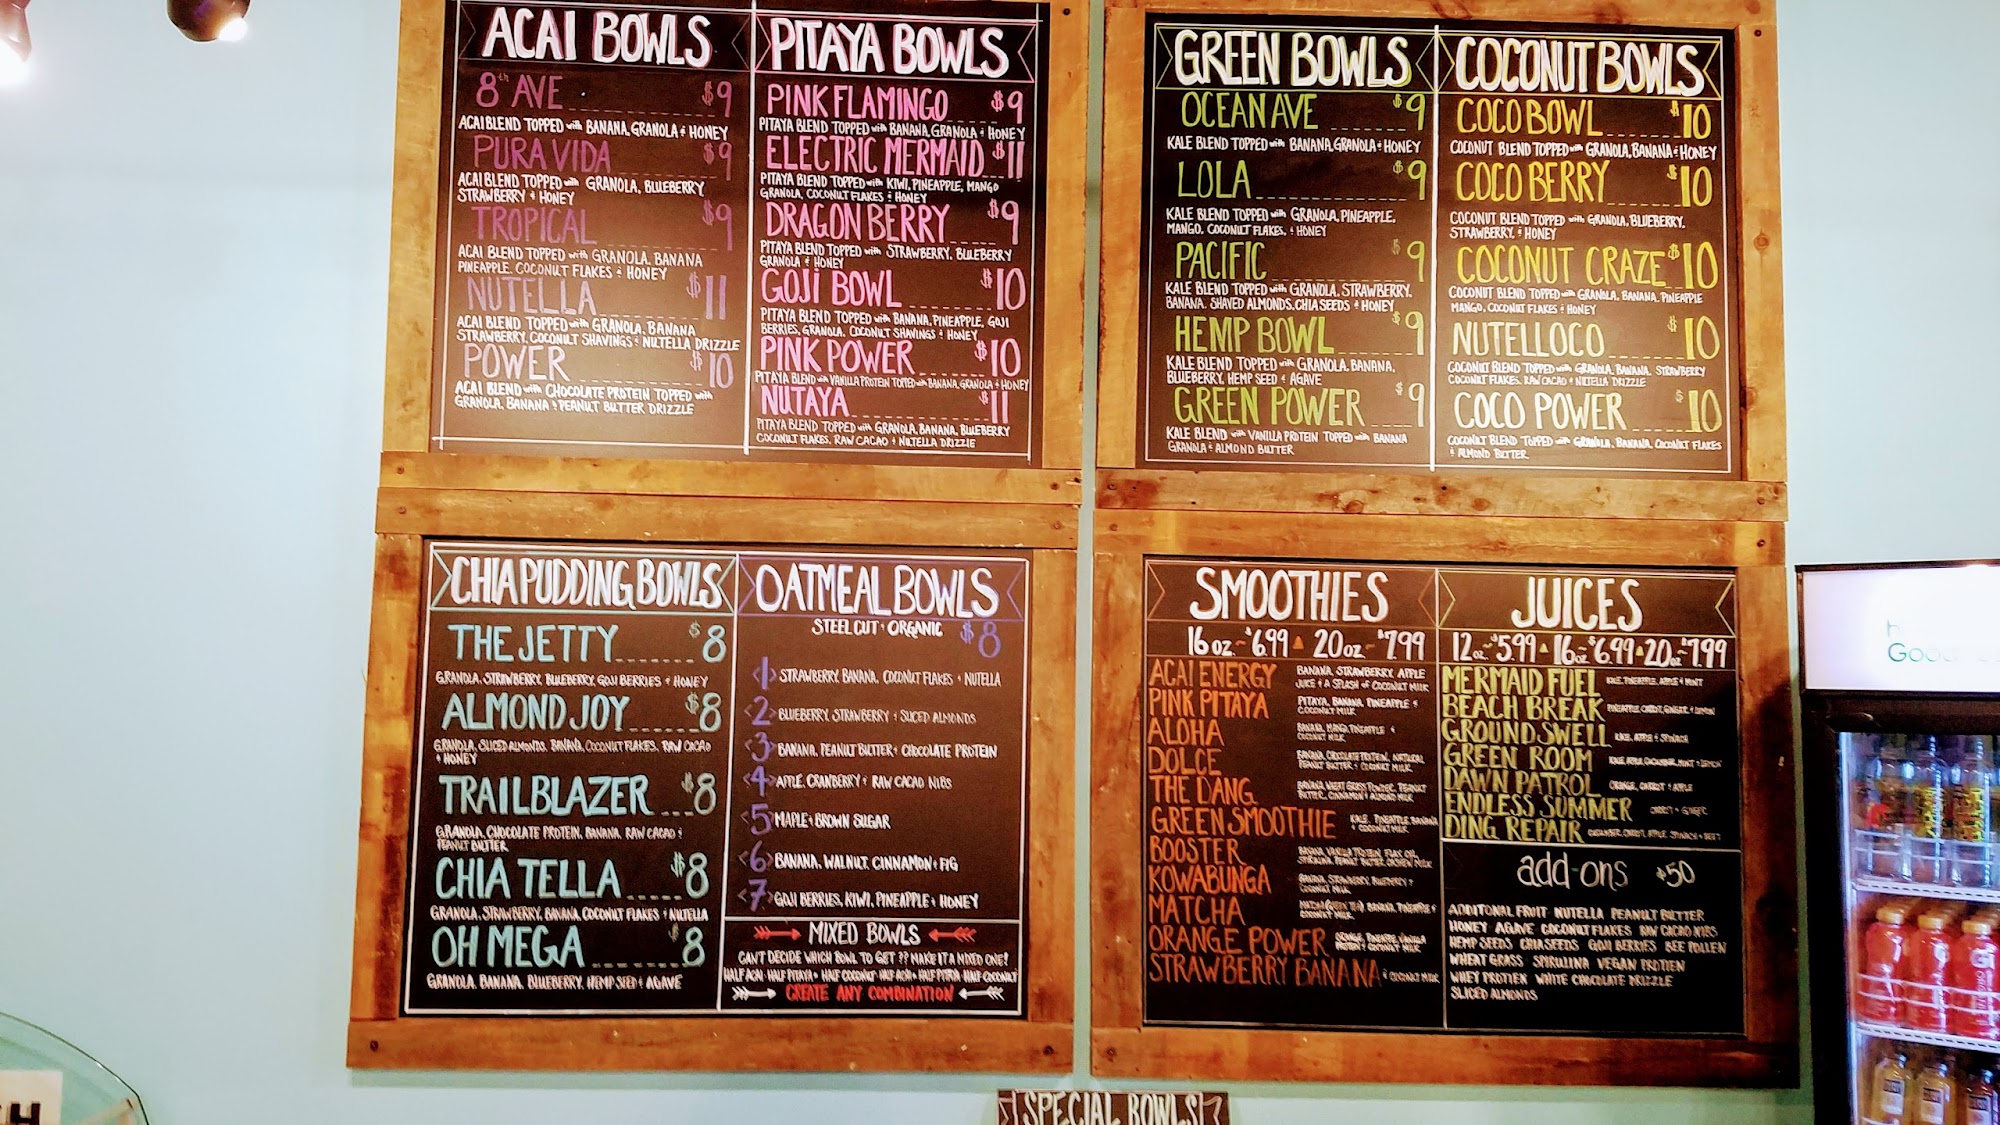 ACAI BOWLS
8th AVE $9
ACAI BLEND TOPPED with BANANA, GRANOLA & HONEY
PURA VIDA $9
ACAI BLEND TOPPED with GRANOLA, BLUEBERRY,
STRAWBERRY & HONEY
TROPICAL $9
ACAI BLEND TOPPED with GRANOLA, BANANA
PINEAPPLE, COCONUT FLAKES & HONEY
NUTELLA $11
ACAI BLEND TOPPED with GRANOLA, BANANA
STRAWBERRY, COCONUT SHAVINGS & NUTELLA DRIZZLE
POWER $10
ACAI BLEND with CHOCOLATE PROTEIN TOPPED with
GRANOLA, BANANA & PEANUT BUTTER DRIZZLE
PITAYA BOWLS
PINK FLAMINGO $9
PITAYA BLEND TOPPED with BANANA, GRANOLA & HONEY
ELECTRIC MERMAID $11
PITAYA BLEND TOPPED with KIWI, PINEAPPLE, MANGO
GRANOLA, COCONUT FLAKES & HONEY
DRAGON BERRY $9
PITAYA BLEND TOPPED with STRAWBERRY, BLUEBERRY
GRANOLA & HONEY
GOJI BOWL $10
PITAYA BLEND TOPPED with BANANA, PINEAPPLE, GOJI
BERRIES, GRANOLA, COCONUT SHAVINGS & HONEY
PINK POWER $10
PITAYA BLEND with VANILLA PROTEIN TOPPED with BANANA, GRANOLA & HONEY
NUTAYA $11
PITAYA BLEND TOPPED with GRANOLA, BANANA, BLUEBERRY
COCONUT FLAKES, RAW CACAO & NUTELLA DRIZZLE
GREEN BOWLS
OCEAN AVE $9
KALE BLEND TOPPED with BANANA, GRANOLA & HONEY
LOLA $9
KALE BLEND TOPPED with GRANOLA, PINEAPPLE,
MANGO, COCONUT FLAKES, & HONEY
PACIFIC $9
KALE BLEND TOPPED with GRANOLA, STRAWBERRY,
BANANA, SHAVED ALMONDS, CHIA SEEDS & HONEY
HEMP BOWL $9
KALE BLEND TOPPED with GRANOLA, BANANA,
BLUEBERRY, HEMP SEED & AGAVE
GREEN POWER $9
KALE BLEND with VANILLA PROTEIN TOPPED with BANANA
GRANOLA & ALMOND BUTTER
COCONUT BOWLS
COCO BOWL $10
COCONUT BLEND TOPPED with GRANOLA, BANANA & HONEY
COCO BERRY $10
COCONUT BLEND TOPPED with GRANOLA, BLUEBERRY,
STRAWBERRY, & HONEY
COCONUT CRAZE $10
COCONUT BLEND TOPPED with GRANOLA, BANANA, PINEAPPLE
MANGO, COCONUT FLAKES & HONEY
NUTELLOCO $10
COCONUT BLEND TOPPED with GRANOLA, BANANA, STRAWBERRY
COCONUT FLAKES, RAW CACAO & NUTELLA DRIZZLE
COCO POWER $10
COCONUT BLEND TOPPED with GRANOLA, BANANA, COCONUT FLAKES
& ALMOND BUTTER
CHIA PUDDING BOWLS
THE JETTY $8
GRANOLA, STRAWBERRY, BLUEBERRY, GOJI BERRIES & HONEY
ALMOND JOY $8
GRANOLA, SLICED ALMONDS, BANANA, COCONUT FLAKES, RAW CACAO
& HONEY
TRAILBLAZER $8
GRANOLA, CHOCOLATE PROTEIN, BANANA, RAW CACAO &
PEANUT BUTTER
CHIA TELLA $8
GRANOLA, STRAWBERRY, BANANA, COCONUT FLAKES & NUTELLA
OH MEGA $8
GRANOLA, BANANA, BLUEBERRY, HEMP SEED & AGAVE
OATMEAL BOWLS
STEEL CUT & ORGANIC $8
<1> STRAWBERRY, BANANA, COCONUT FLAKES & NUTELLA
<2> BLUEBERRY, STRAWBERRY & SLICED ALMONDS
<3> BANANA, PEANUT BUTTER & CHOCOLATE PROTEIN
<4> APPLE, CRANBERRY & RAW CACAO NIBS
<5> MAPLE & BROWN SUGAR
<6> BANANA, WALNUT, CINNAMON & FIG
<7> GOJI BERRIES, KIWI, PINEAPPLE & HONEY
MIXED BOWLS
CAN'T DECIDE WHICH BOWL TO GET?? MAKE IT A MIXED ONE!
HALF ACAI HALF PITAYA • HALF COCONUT HALF ACAI • HALF PITAYA HALF COCONUT
CREATE ANY COMBINATION
SMOOTHIES
16 oz ~ $6.99 20 oz ~ $7.99
ACAI ENERGY BANANA, STRAWBERRY, APPLE
JUICE & A SPLASH OF COCONUT MILK
PINK PITAYA PITAYA, BANANA, PINEAPPLE &
COCONUT MILK
ALOHA BANANA, MANGO, PINEAPPLE &
COCONUT MILK
DOLCE BANANA, CHOCOLATE PROTEIN, NATURAL
PEANUT BUTTER & COCONUT MILK
THE DANG BANANA, WHEAT GRASS POWDER, PEANUT
BUTTER, CINNAMON & ALMOND MILK
GREEN SMOOTHIE KALE, PINEAPPLE, BANANA
& COCONUT MILK
BOOSTER BANANA, VANILLA PROTEIN, FLAX OIL,
SPIRULINA, PEANUT BUTTER, MILK
KOWABUNGA BANANA, STRAWBERRY, BLUEBERRY &
COCONUT MILK
MATCHA MATCHA (GREEN TEA), BANANA, PINEAPPLE &
COCONUT MILK
ORANGE POWER ORANGE, PINEAPPLE, VANILLA
PROTEIN & COCONUT MILK
STRAWBERRY BANANA & COCONUT MILK
JUICES
12 oz ~ $5.99 16 oz ~ $6.99 20 oz ~ $7.99
MERMAID FUEL KALE, PINEAPPLE, APPLE & MINT
BEACH BREAK PINEAPPLE, CARROT, GINGER, & LEMON
GROUND SWELL KALE, APPLE & SPINACH
GREEN ROOM KALE, APPLE, CUCUMBER, MINT & LEMON
DAWN PATROL ORANGE, CARROT & APPLE
ENDLESS SUMMER CARROT & GINGER
DING REPAIR CUCUMBER, CARROT, APPLE, SPINACH & BEET
add-ons $.50
ADDITONAL FRUIT NUTELLA PEANUT BUTTER
HONEY AGAVE COCONUT FLAKES RAW CACAO NIBS
HEMP SEEDS CHIA SEEDS GOJI BERRIES BEE POLLEN
WHEAT GRASS SPIRULINA VEGAN PROTIEN
WHEY PROTIEN WHITE CHOCOLATE DRIZZLE
SLICED ALMONDS
SPECIAL BOWLS